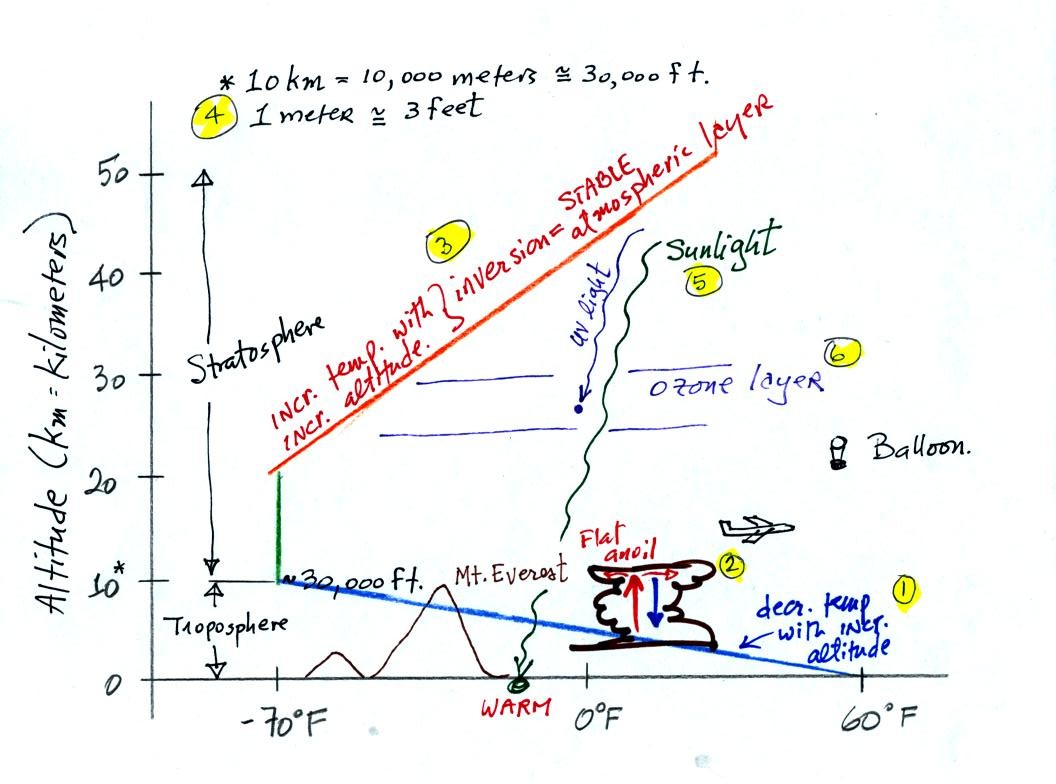 * 10 km = 10,000 meters ≅ 30,000 ft.
④ 1 meter ≅ 3 feet
Altitude (km = kilometers)
50
40
30
20
10*
0
Stratosphere
Troposphere
③
INCR. temp. with
INCR. altitude.
} inversion = STABLE
atmospheric layer
uv light
Sunlight
⑤
⑥
ozone layer
Balloon.
Flat
anvil
②
①
~30,000 ft.
Mt. Everest
decr. temp
with incr.
altitude
WARM
-70°F
0°F
60°F